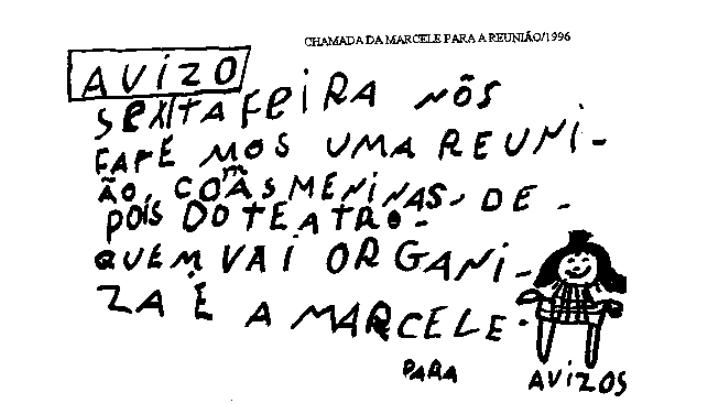 CHAMADA DA MARCELE PARA A REUNIÃO/1996
AVIZO
SEXTA FEIRA NÔS
FARE MOS UMA REUNI-
ÃO, COM AS MENINAS, DE-
POIS DO TEATRO-
QUEM VAI ORGANI-
ZA É A MARCELE-
PARA AVIZOS